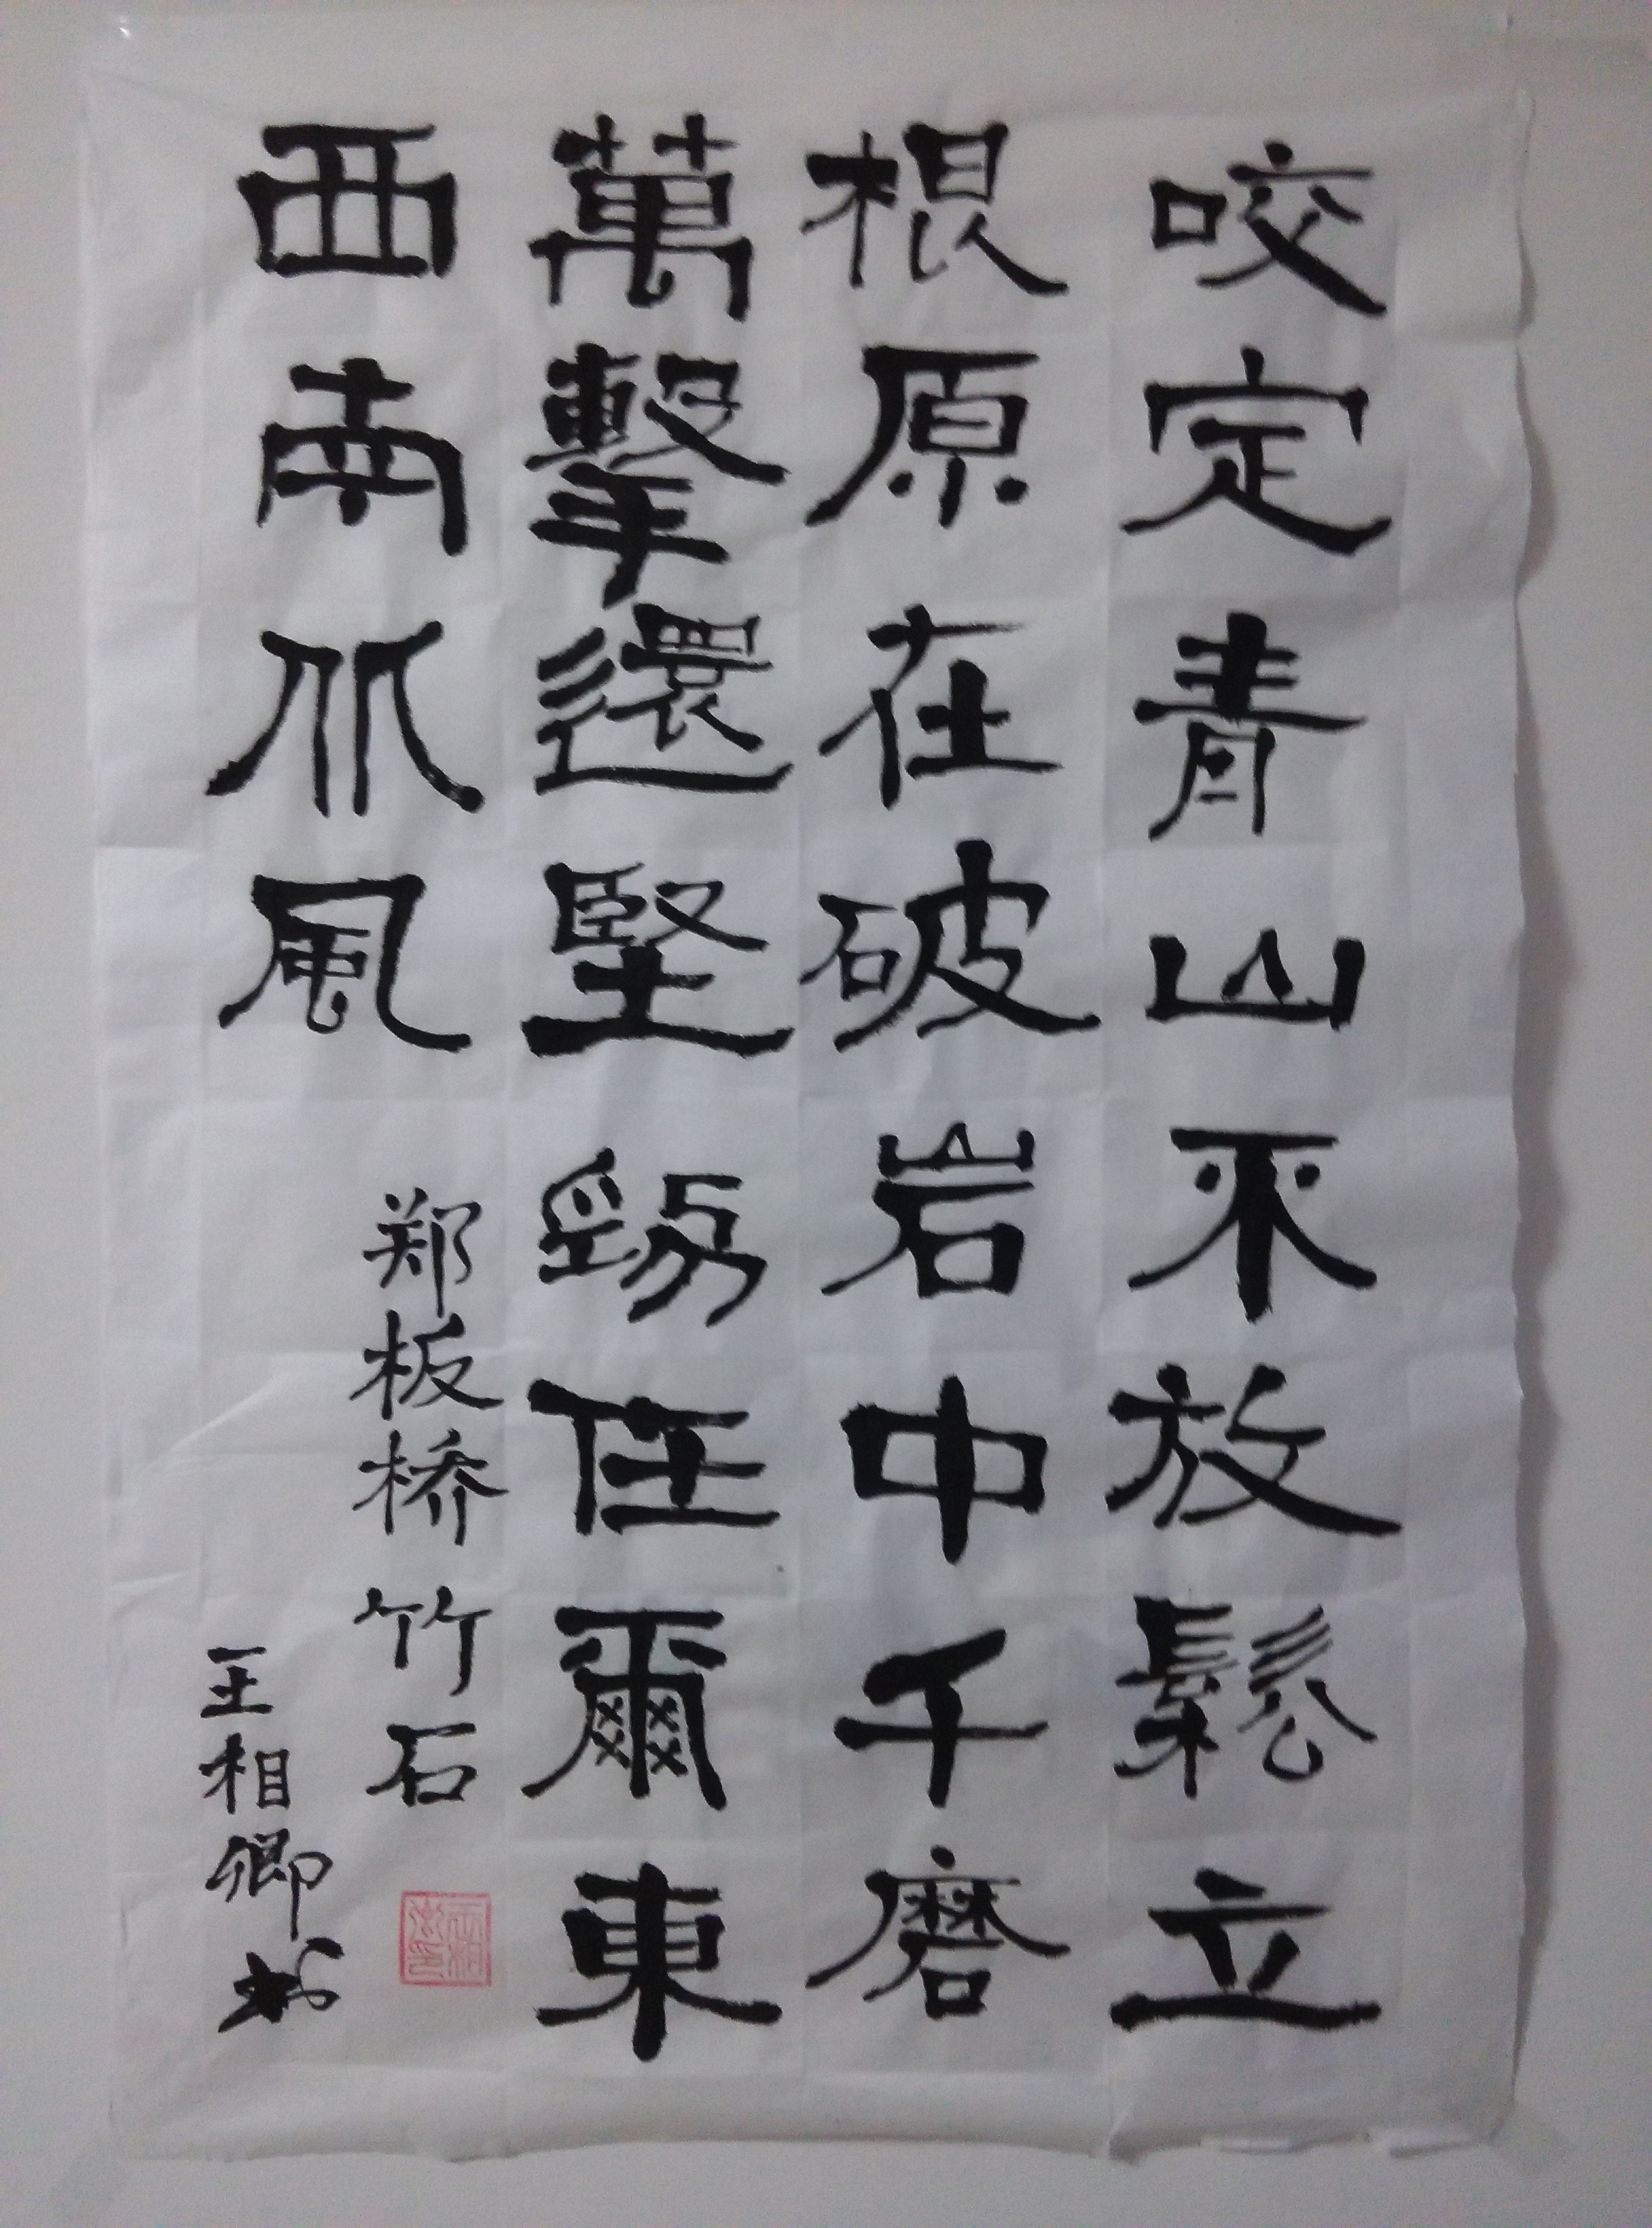 咬定青山不放鬆立
根原在破岩中千磨
萬擊還堅勁任爾東
西南北風
郑板桥竹石
王相卿书